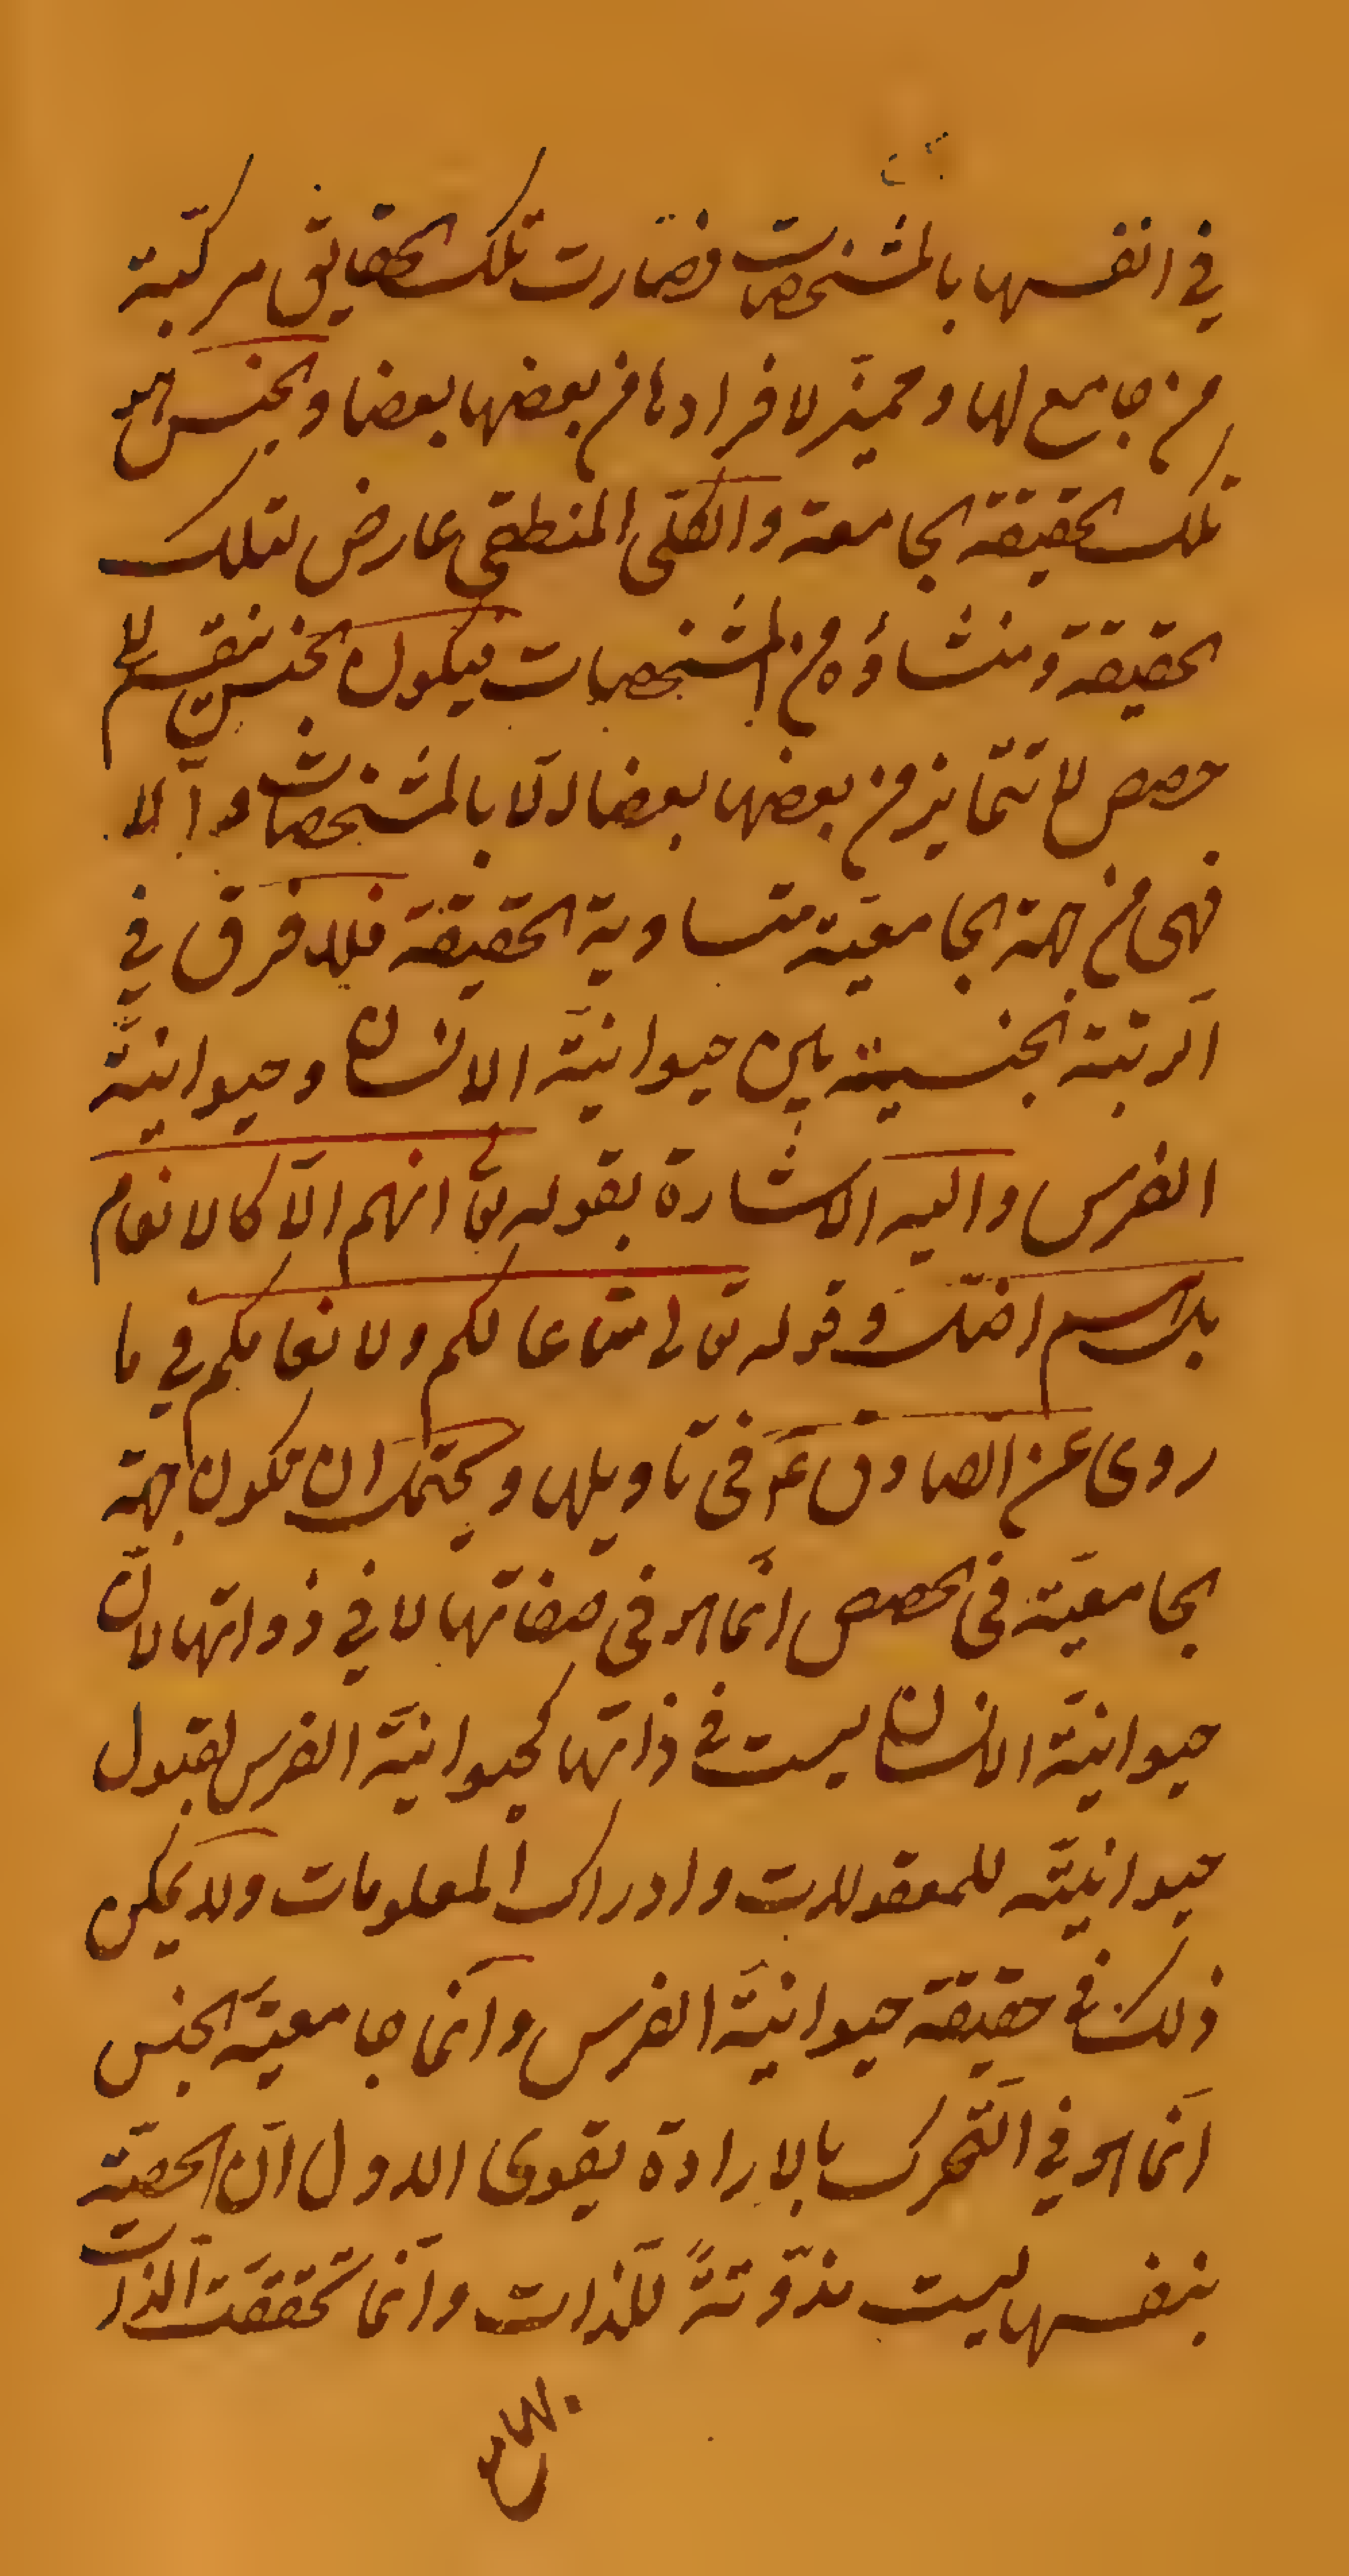 في انفسها بالمشخصات فصارت تلك الحقايق مركّبة
من جامع لها و مميّز لافرادها من بعضها بعضا والجنس هو
تلك الحقيقة الجامعة والكلّى المنطقى عارض لتلك
الحقيقة ومنشاؤه من المشخصات فيكون الجنس ينقسم الى
حصص لا تتمايز من بعضها بعضا الّا بالمشخصات والّا
فهى من جهة الجامعيّة متساوية الحقيقة فلا فرق في
الرتبة الجنسية بين حيوانيّة الانسان وحيوانيّة
الفرس واليه الاشارة بقوله تع ان هم الّا كالانعام
بل هم اضلّ وقوله تعالى متاعا لكم ولانعامكم في ما
روى عن الصادق ع في تاويلها ويحتمل ان تكون جهة
الجامعيّة في الحصص انّما هو في صفاتها لا في ذواتها لانّ
حيوانيّة الانسان ليست في ذاتها كحيوانيّة الفرس لقبول
حيوانيّته للمعقولات وادراك المعلومات ولا يمكن
ذلك في حقيقة حيوانيّة الفرس وانّما جامعيّة الجنس
انّما هو في التّحرك بالارادة يقوى الاول انّ الحصّة
بنفسها ليست مذوّتةً للّذات وانّما تحقّقت الذات